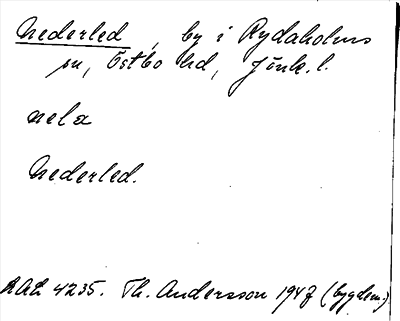 Nederled, by i Rydaholms
sn, Östbo hd, Jönk. l.
nela
Nederled.
AAL 4235. Th. Andersson 1947 (bygdem.)